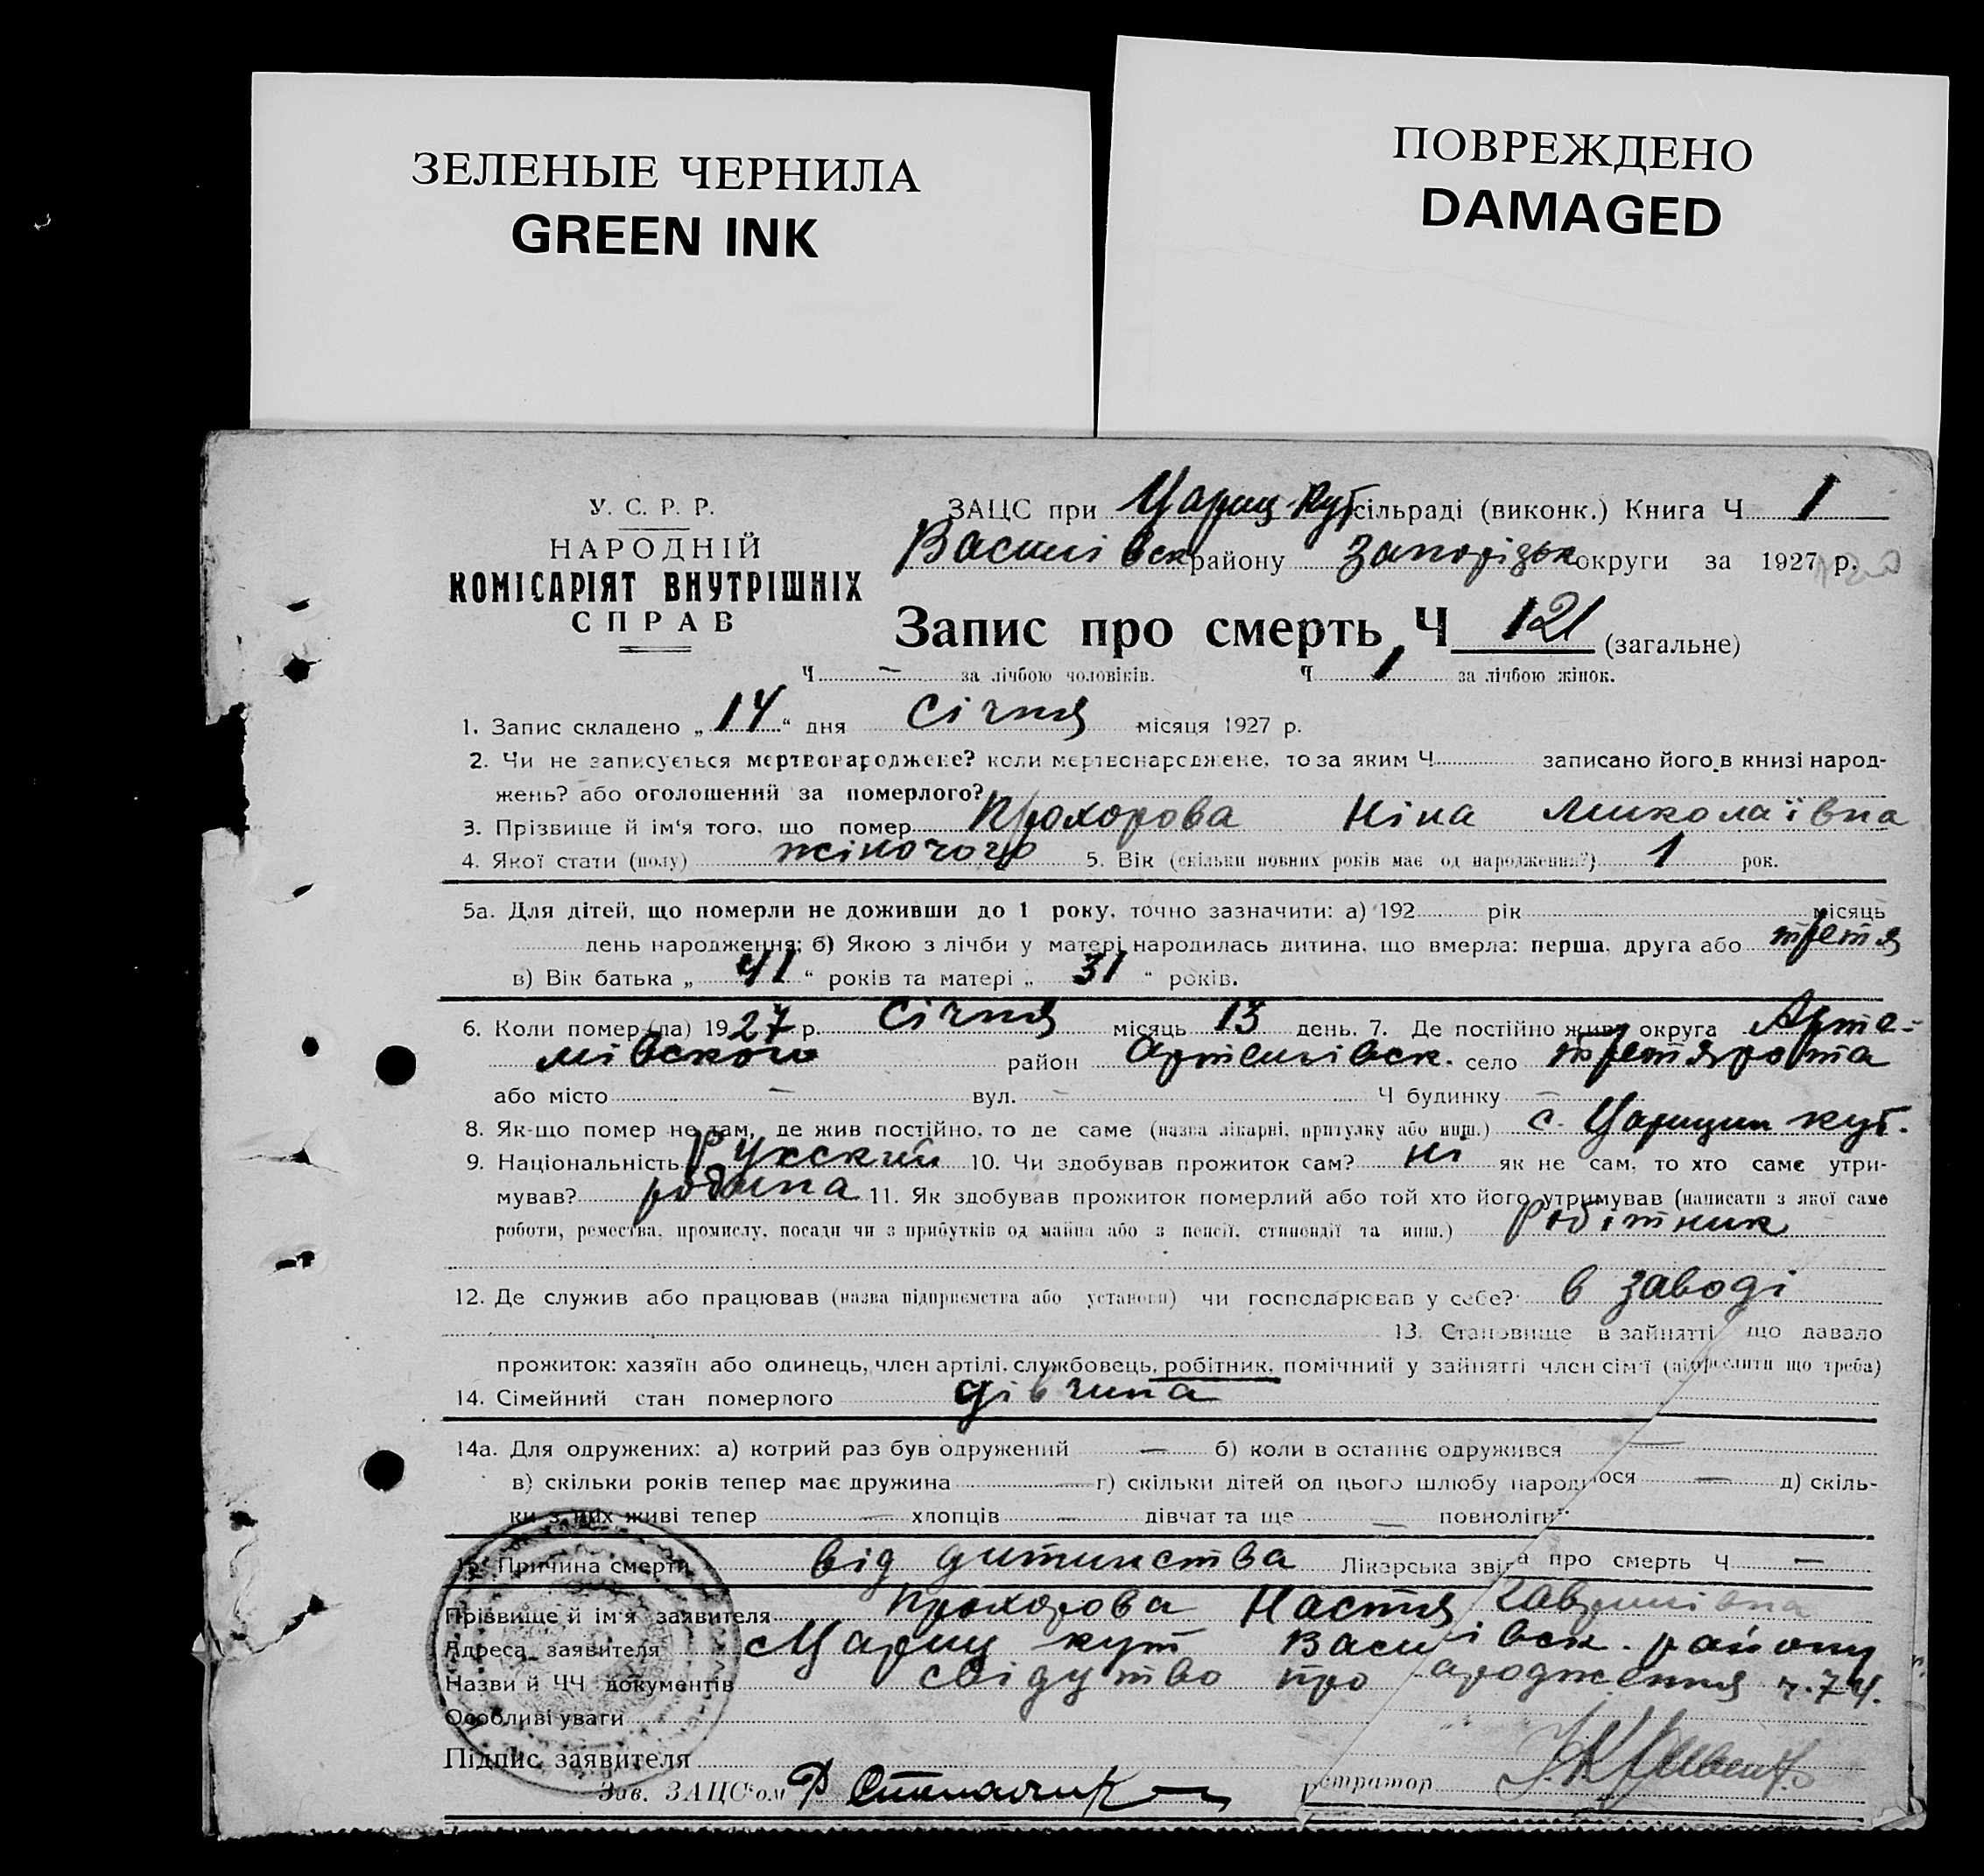 ЗЕЛЕНЫЕ ЧЕРНИЛА
GREEN INK
ПОВРЕЖДЕНО
DAMAGED
У. С. Р. Р.
НАРОДНІЙ
КОМІСАРІЯТ ВНУТРІШНІХ
СПРАВ
ЗАЦС при Цариц-Кут сільраді (виконк.) Книга Ч 1
Василівск району Запорізьк округи за 1927 р.
Запис про смерть, Ч 121 (загальне)
Ч — за лічбою чоловіків. Ч 1 за лічбою жінок.
1. Запис складено „14“ дня Січня місяця 1927 р.
2. Чи не записується мертвонароджене? коли мертвонароджене, то за яким Ч записано його в книзі народ-
жень? або оголошений за померлого?
3. Прізвище й ім'я того, що помер Прохорова Ніна Миколаївна
4. Якої стати (полу) жіночого 5. Вік (скільки повних років має од народження?) 1 рок.
5а. Для дітей, що померли не доживши до 1 року, точно зазначити: а) 192 рік місяць
день народження; б) Якою з лічби у матері народилась дитина, що вмерла: перша, друга або третя
в) Вік батька „41“ років та матері „31“ років.
6. Коли помер (ла) 1927 р. Січня місяць 13 день. 7. Де постійно жив: округа Арте-
мівского район Артемівск. село третярота
або місто — вул. — Ч будинку —
8. Як-що помер не там, де жив постійно, то де саме (назва лікарні, притулку або инш.) с. Царицин кут.
9. Національність Рускский 10. Чи здобував прожиток сам? ні як не сам, то хто саме утри-
мував? родина 11. Як здобував прожиток померлий або той хто його утримував (написати з якої саме
роботи, ремества, промислу, посади чи з прибутків од майна або з пенсії, стипендії та инш.) Робітник
12. Де служив або працював (назва підприємства або установи) чи господарював у себе? в заводі
13. Становище в зайнятті що давало
прожиток: хазяїн або одинець, член артілі, службовець, робітник, помічний у зайнятті член сім'ї (підкреслити що треба)
14. Сімейний стан померлого дівчина
14а. Для одружених: а) котрий раз був одружений — б) коли в останнє одружився —
в) скільки років тепер має дружина — г) скільки дітей од цього шлюбу народилося — д) скіль-
ки з них живі тепер — хлопців — дівчат та ще — повноліт
15. Причина смерти від дитинства Лікарська звістка про смерть Ч —
Прізвище й ім'я заявителя Прохорова Настя Гаврилівна
Адреса заявителя с Цариц кут Василівск. району
Назви й ЧЧ документів свідуцтво про народження ч. 74.
Особливі уваги
Підпис заявителя
Зав. ЗАЦС'ом
Реєстратор